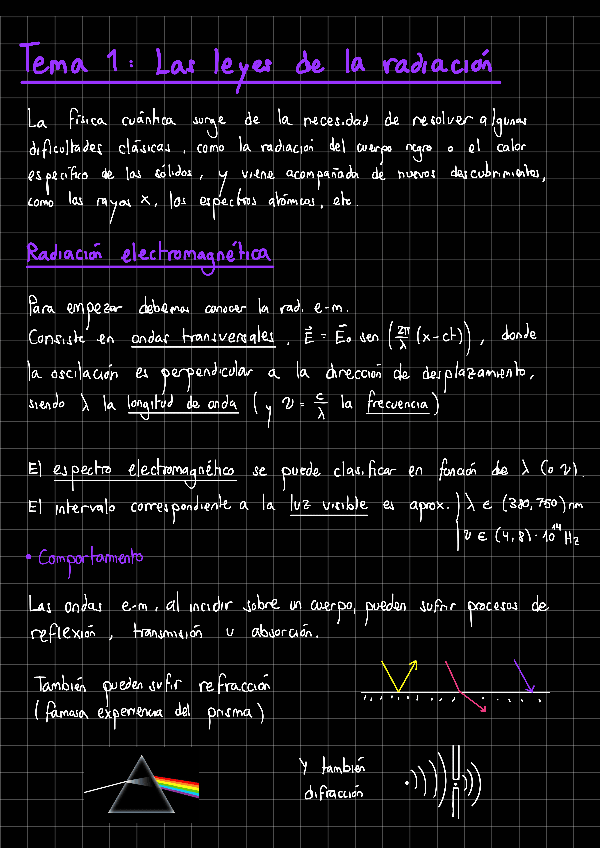 Tema 1: Las leyes de la radiación
La física cuántica surge de la necesidad de resolver algunas
dificultades clásicas, como la radiación del cuerpo negro o el calor
específico de los sólidos, y viene acompañada de nuevos descubrimientos,
como los rayos X, los espectros atómicos, etc.
Radiación electromagnética
Para empezar debemos conocer la rad. e-m.
Consiste en ondas transversales, E⃗ = E⃗₀ sen (2π/λ (x-ct)), donde
la oscilación es perpendicular a la dirección de desplazamiento,
siendo λ la longitud de onda (y ν = c/λ la frecuencia)
El espectro electromagnético se puede clasificar en función de λ (o ν).
El intervalo correspondiente a la luz visible es aprox. λ ∈ (380,750) nm
ν ∈ (4,8)·10¹⁴ Hz
• Comportamiento
Las ondas e-m, al incidir sobre un cuerpo, pueden sufrir procesos de
reflexión, transmisión u absorción.
También pueden sufrir refracción
(famosa experiencia del prisma)
Y también
difracción